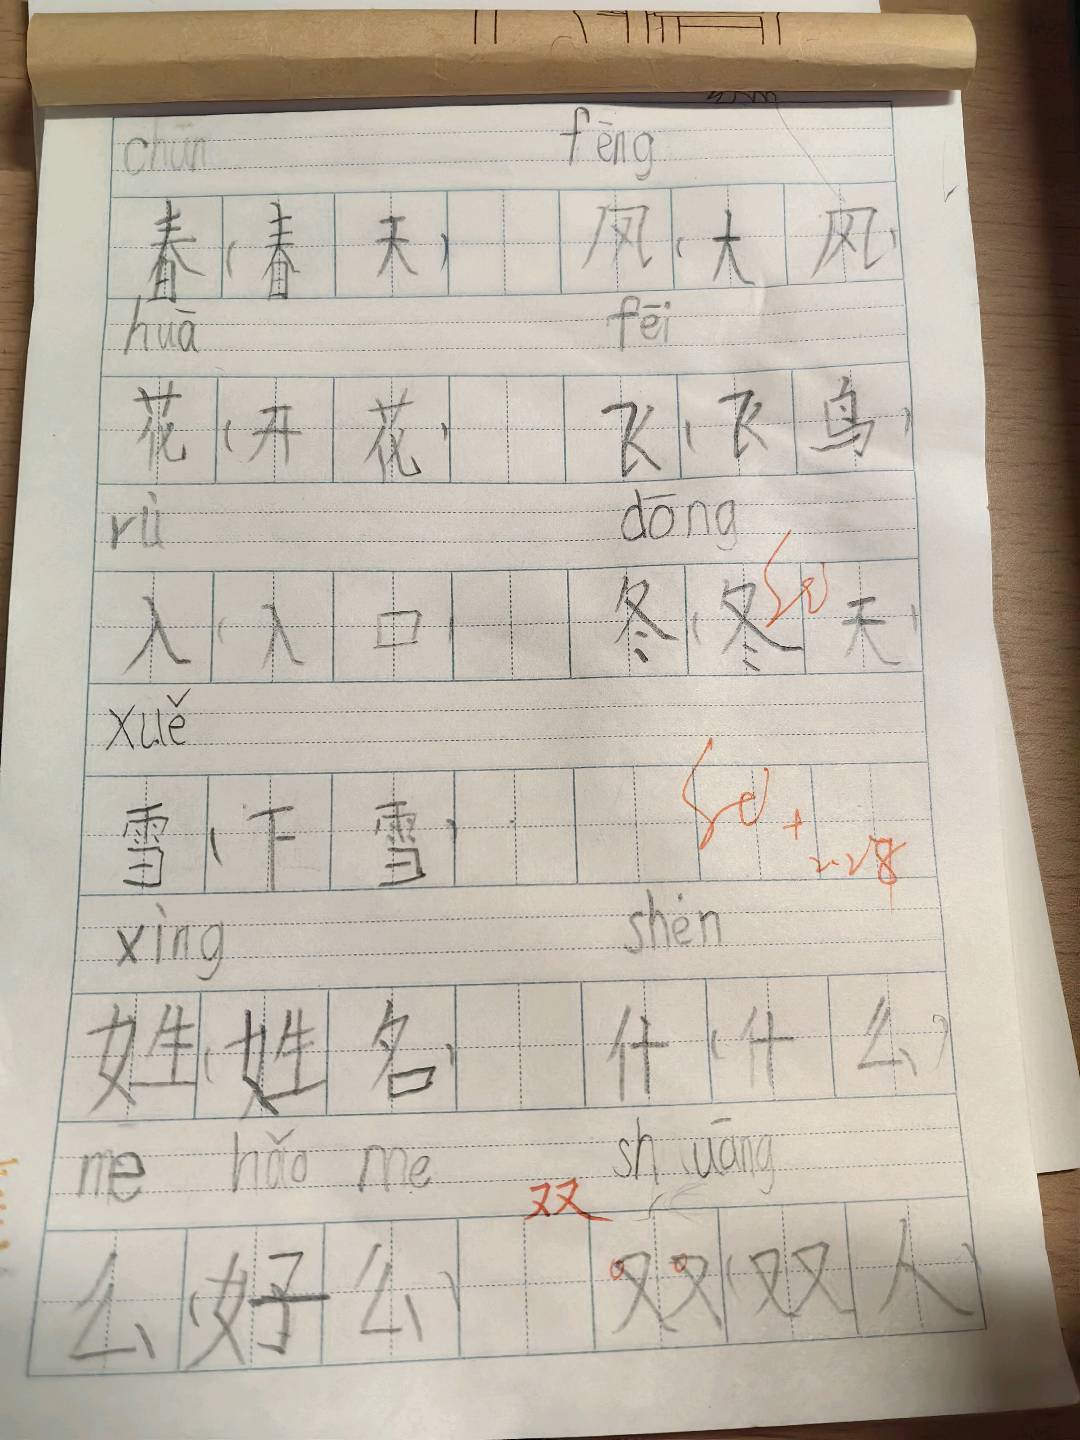 chūn fēng
春（春天） 风（大风）
huā fēi
花（开花） 飞（飞鸟）
rù dōng
入（入口） 冬（冬天）
xuě
雪（下雪）
2.28
xìng shén
姓（姓名） 什（什么）
me hǎo me shuāng
双
么（好么） 双（双人